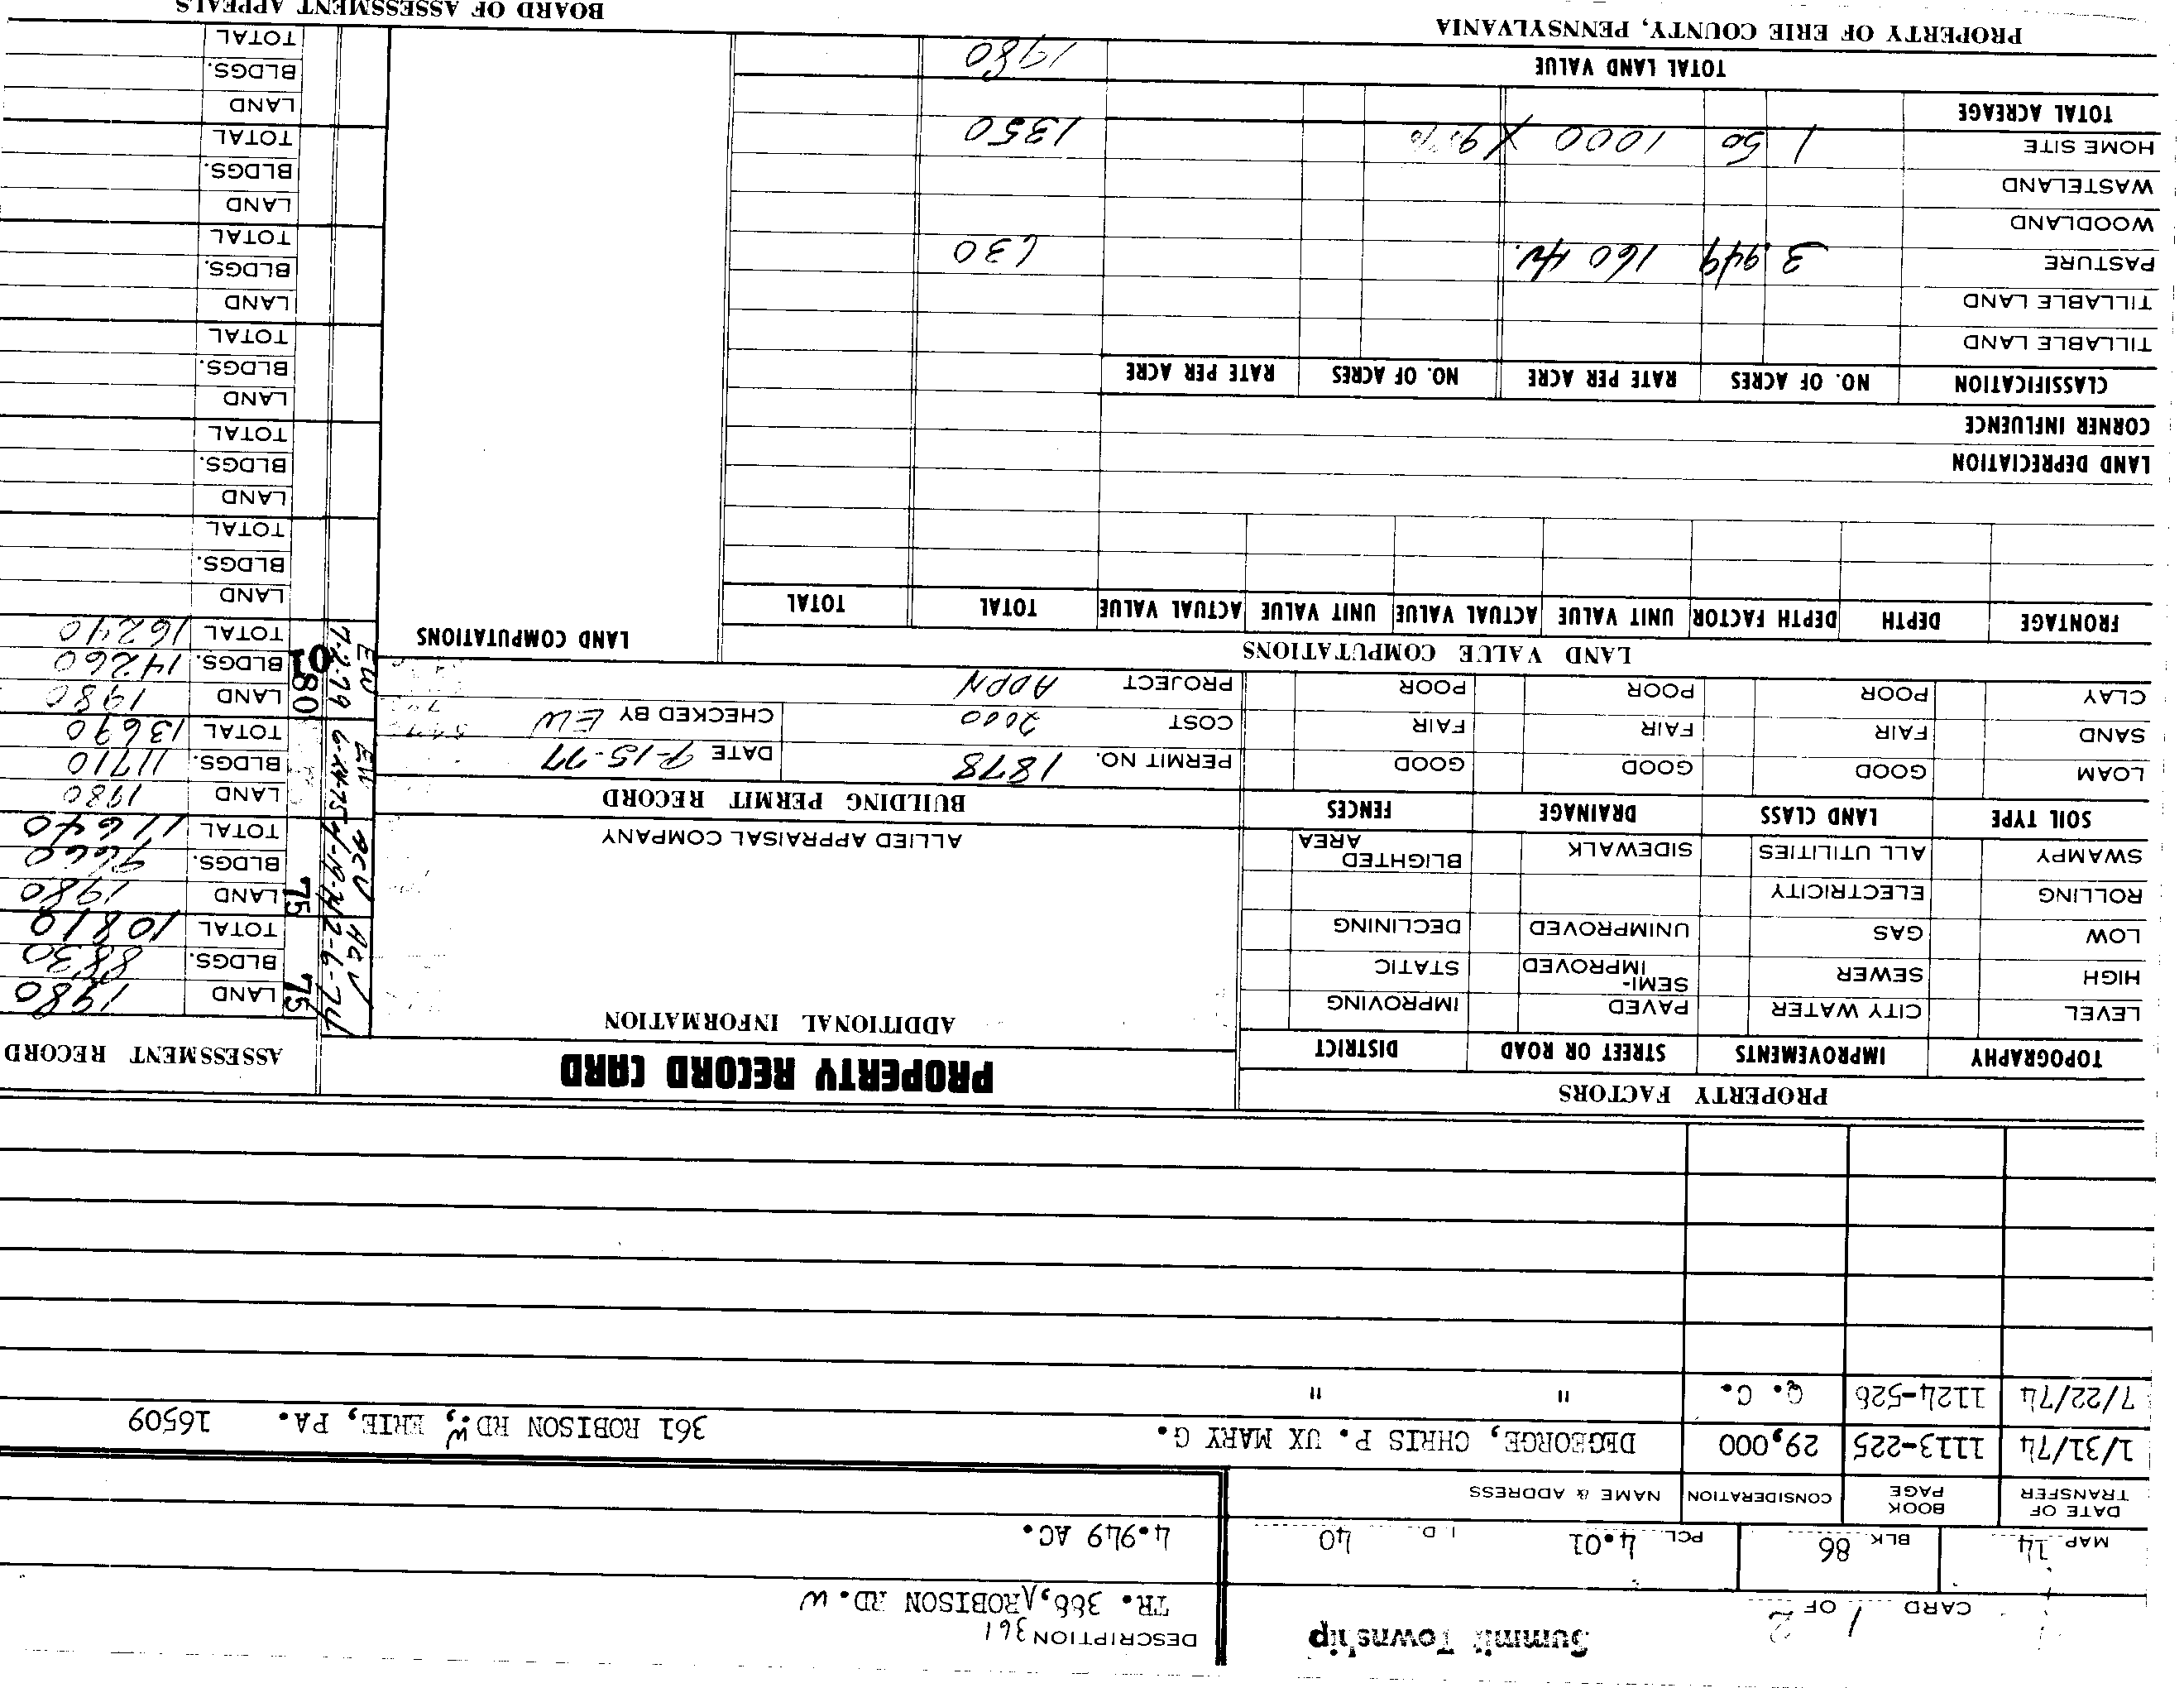 CARD 1 OF 2
Summit Township
DESCRIPTION 361
TR. 388, ROBISON RD. W
MAP 14 BLK 86 PCL 4.01 I.D. 40
4.949 AC.
DATE OF TRANSFER BOOK PAGE CONSIDERATION NAME & ADDRESS
1/31/74 1113-225 29,000 DEGEORGE, CHRIS P. UX MARY G. 361 ROBISON RD. W, ERIE, PA. 16509
7/22/74 1124-526 Q. C. " "
PROPERTY FACTORS
TOPOGRAPHY IMPROVEMENTS STREET OR ROAD DISTRICT
LEVEL CITY WATER PAVED IMPROVING
HIGH SEWER SEMI-IMPROVED STATIC
LOW GAS UNIMPROVED DECLINING
ROLLING ELECTRICITY
SWAMPY ALL UTILITIES SIDEWALK BLIGHTED AREA
SOIL TYPE LAND CLASS DRAINAGE FENCES
LOAM GOOD GOOD GOOD
SAND FAIR FAIR FAIR
CLAY POOR POOR POOR
PROPERTY RECORD CARD
ADDITIONAL INFORMATION
ALLIED APPRAISAL COMPANY
BUILDING PERMIT RECORD
PERMIT NO. 1878 DATE 9-15-77
COST 2000 CHECKED BY EW
PROJECT ADDN
ASSESSMENT RECORD
75 LAND 1980
BLDGS. 8830
TOTAL 10810
ACV 2-6-74
75 LAND 1980
BLDGS. 9660
TOTAL 11640
ACV
LAND 1980
BLDGS. 11710
TOTAL 13690
EW 6-24-75
80 LAND 1980
01 BLDGS. 14260
TOTAL 16240
EW 7-2-79
LAND
BLDGS.
TOTAL
LAND
BLDGS.
TOTAL
LAND
BLDGS.
TOTAL
LAND
BLDGS.
TOTAL
LAND
BLDGS.
TOTAL
LAND
BLDGS.
TOTAL
LAND VALUE COMPUTATIONS
LAND COMPUTATIONS
FRONTAGE DEPTH DEPTH FACTOR UNIT VALUE ACTUAL VALUE UNIT VALUE ACTUAL VALUE TOTAL TOTAL
LAND DEPRECIATION
CORNER INFLUENCE
CLASSIFICATION NO. OF ACRES RATE PER ACRE NO. OF ACRES RATE PER ACRE
TILLABLE LAND
TILLABLE LAND
PASTURE 3.949 160 AV. 630
WOODLAND
WASTELAND
HOME SITE 1 50 1000 X 90% 1350
TOTAL ACREAGE
TOTAL LAND VALUE 1980
PROPERTY OF ERIE COUNTY, PENNSYLVANIA
BOARD OF ASSESSMENT APPEALS